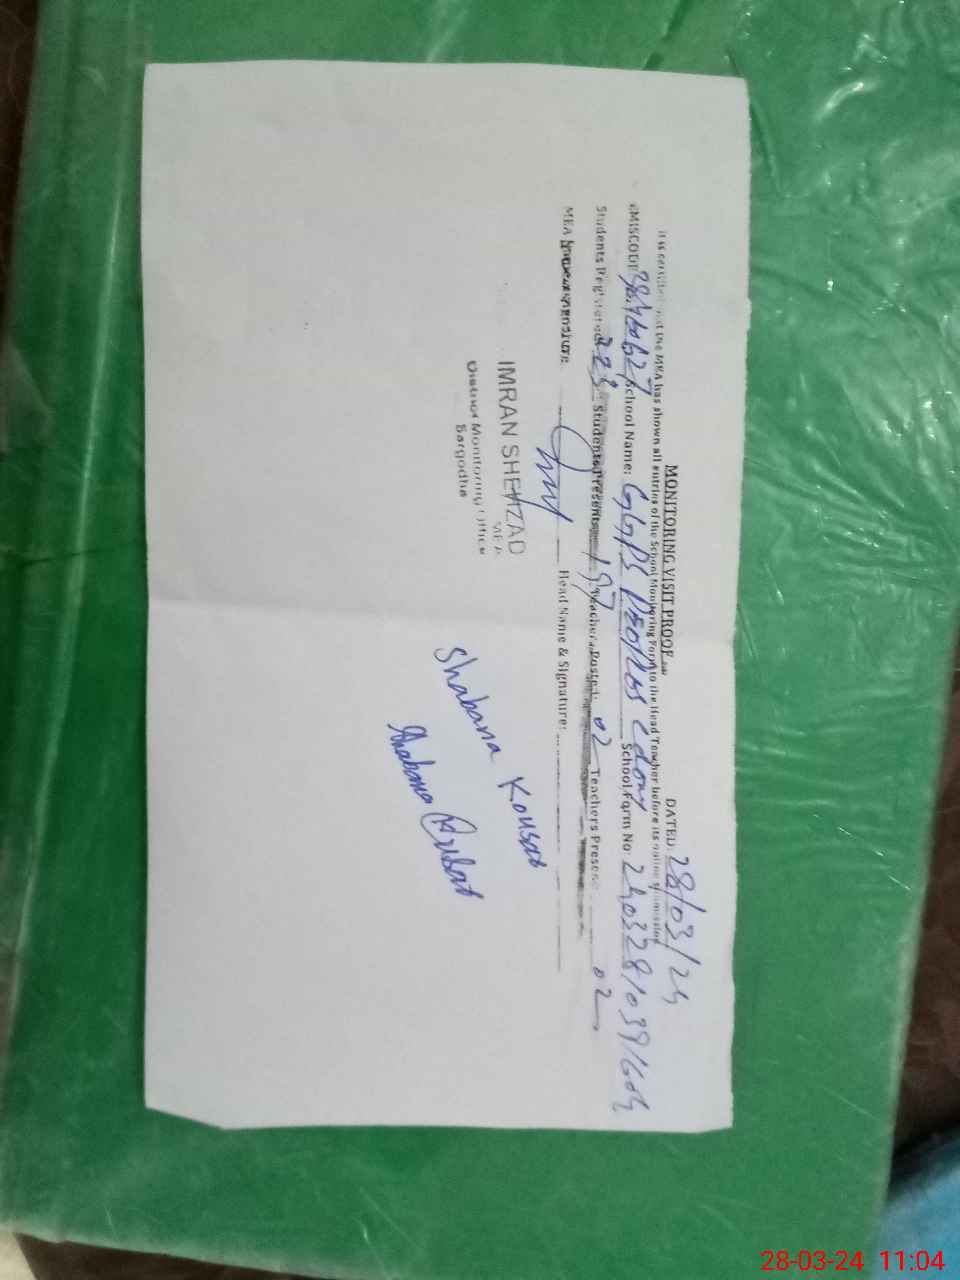 MONITORING VISIT PROOF DATED: 28/03/24
It is certified that the MEA has shown all entries of the School Monitoring Form to the Head Teacher before its online submission
EMISCODE School Name: GGPS PEOPLES COLONY School Form No:
Students Registered: 223 Students Present: 197 Teachers Posted: 02 Teachers Present: 02
MEA Head Name & Signature:
IMRAN SHEHZAD
MEA
District Monitoring Office
Sargodha
Shabana Kousar
Shabana Kousar
28-03-24 11:04